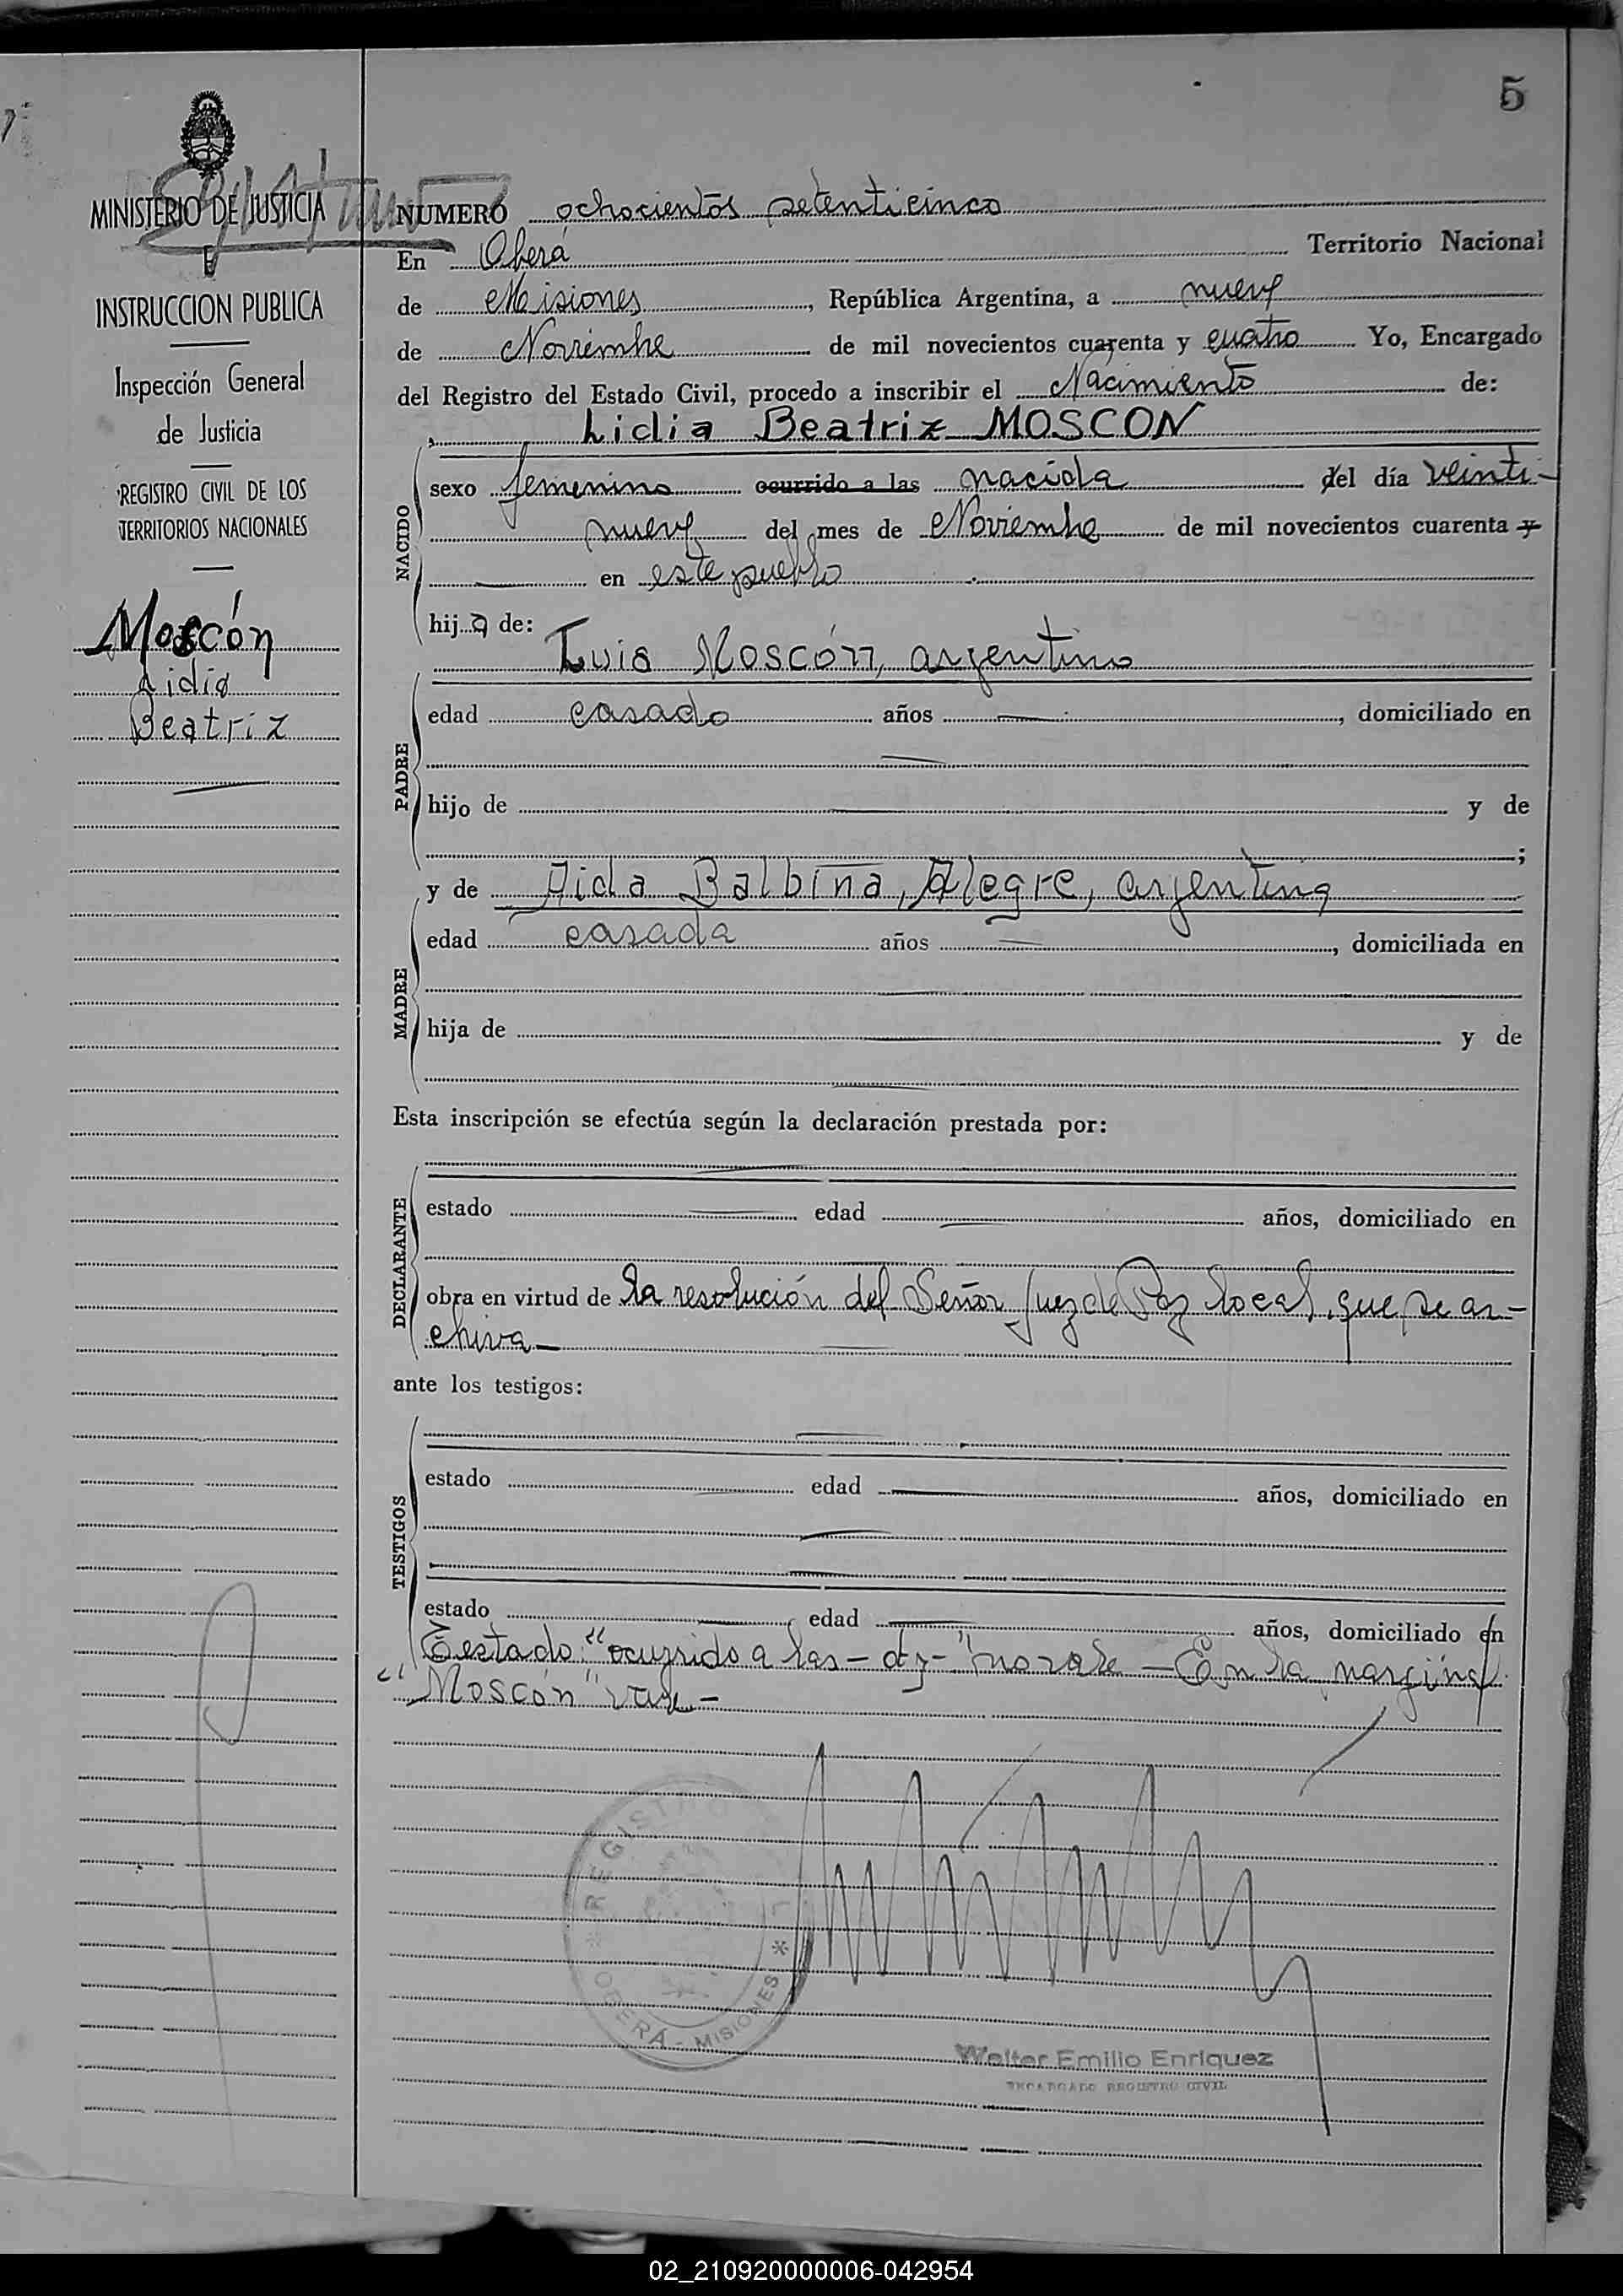 5
MINISTERIO DE JUSTICIA
E
INSTRUCCION PUBLICA
Inspección General
de Justicia
REGISTRO CIVIL DE LOS
TERRITORIOS NACIONALES
Moscón
Lidia
Beatriz
NUMERO ochocientos setenticinco
En Oberá Territorio Nacional
de Misiones, República Argentina, a nueve
de Noviembre de mil novecientos cuarenta y cuatro Yo, Encargado
del Registro del Estado Civil, procedo a inscribir el Nacimiento de:
Lidia Beatriz MOSCON
NACIDO
sexo femenino ocurrido a las nacida del día veinti-
nueve del mes de Noviembre de mil novecientos cuarenta y
en este pueblo
hija de:
Luis Moscón, argentino
PADRE
edad casado años, domiciliado en
hijo de y de
;
y de Aida Balbina, Alegre, argentina
MADRE
edad casada años, domiciliada en
hija de y de
Esta inscripción se efectúa según la declaración prestada por:
DECLARANTE
estado edad años, domiciliado en
obra en virtud de la resolución del Señor Juez de Paz local, que se ar-
chiva-
ante los testigos:
TESTIGOS
estado edad años, domiciliado en
estado edad años, domiciliado en
Testado: "ocurrido a las - d y - " no vale - En la marginal
"Moscón" vale -
REGISTRO
OBERÁ - MISIONES
Walter Emilio Enriquez
ENCARGADO REGISTRO CIVIL
02_210920000006-042954